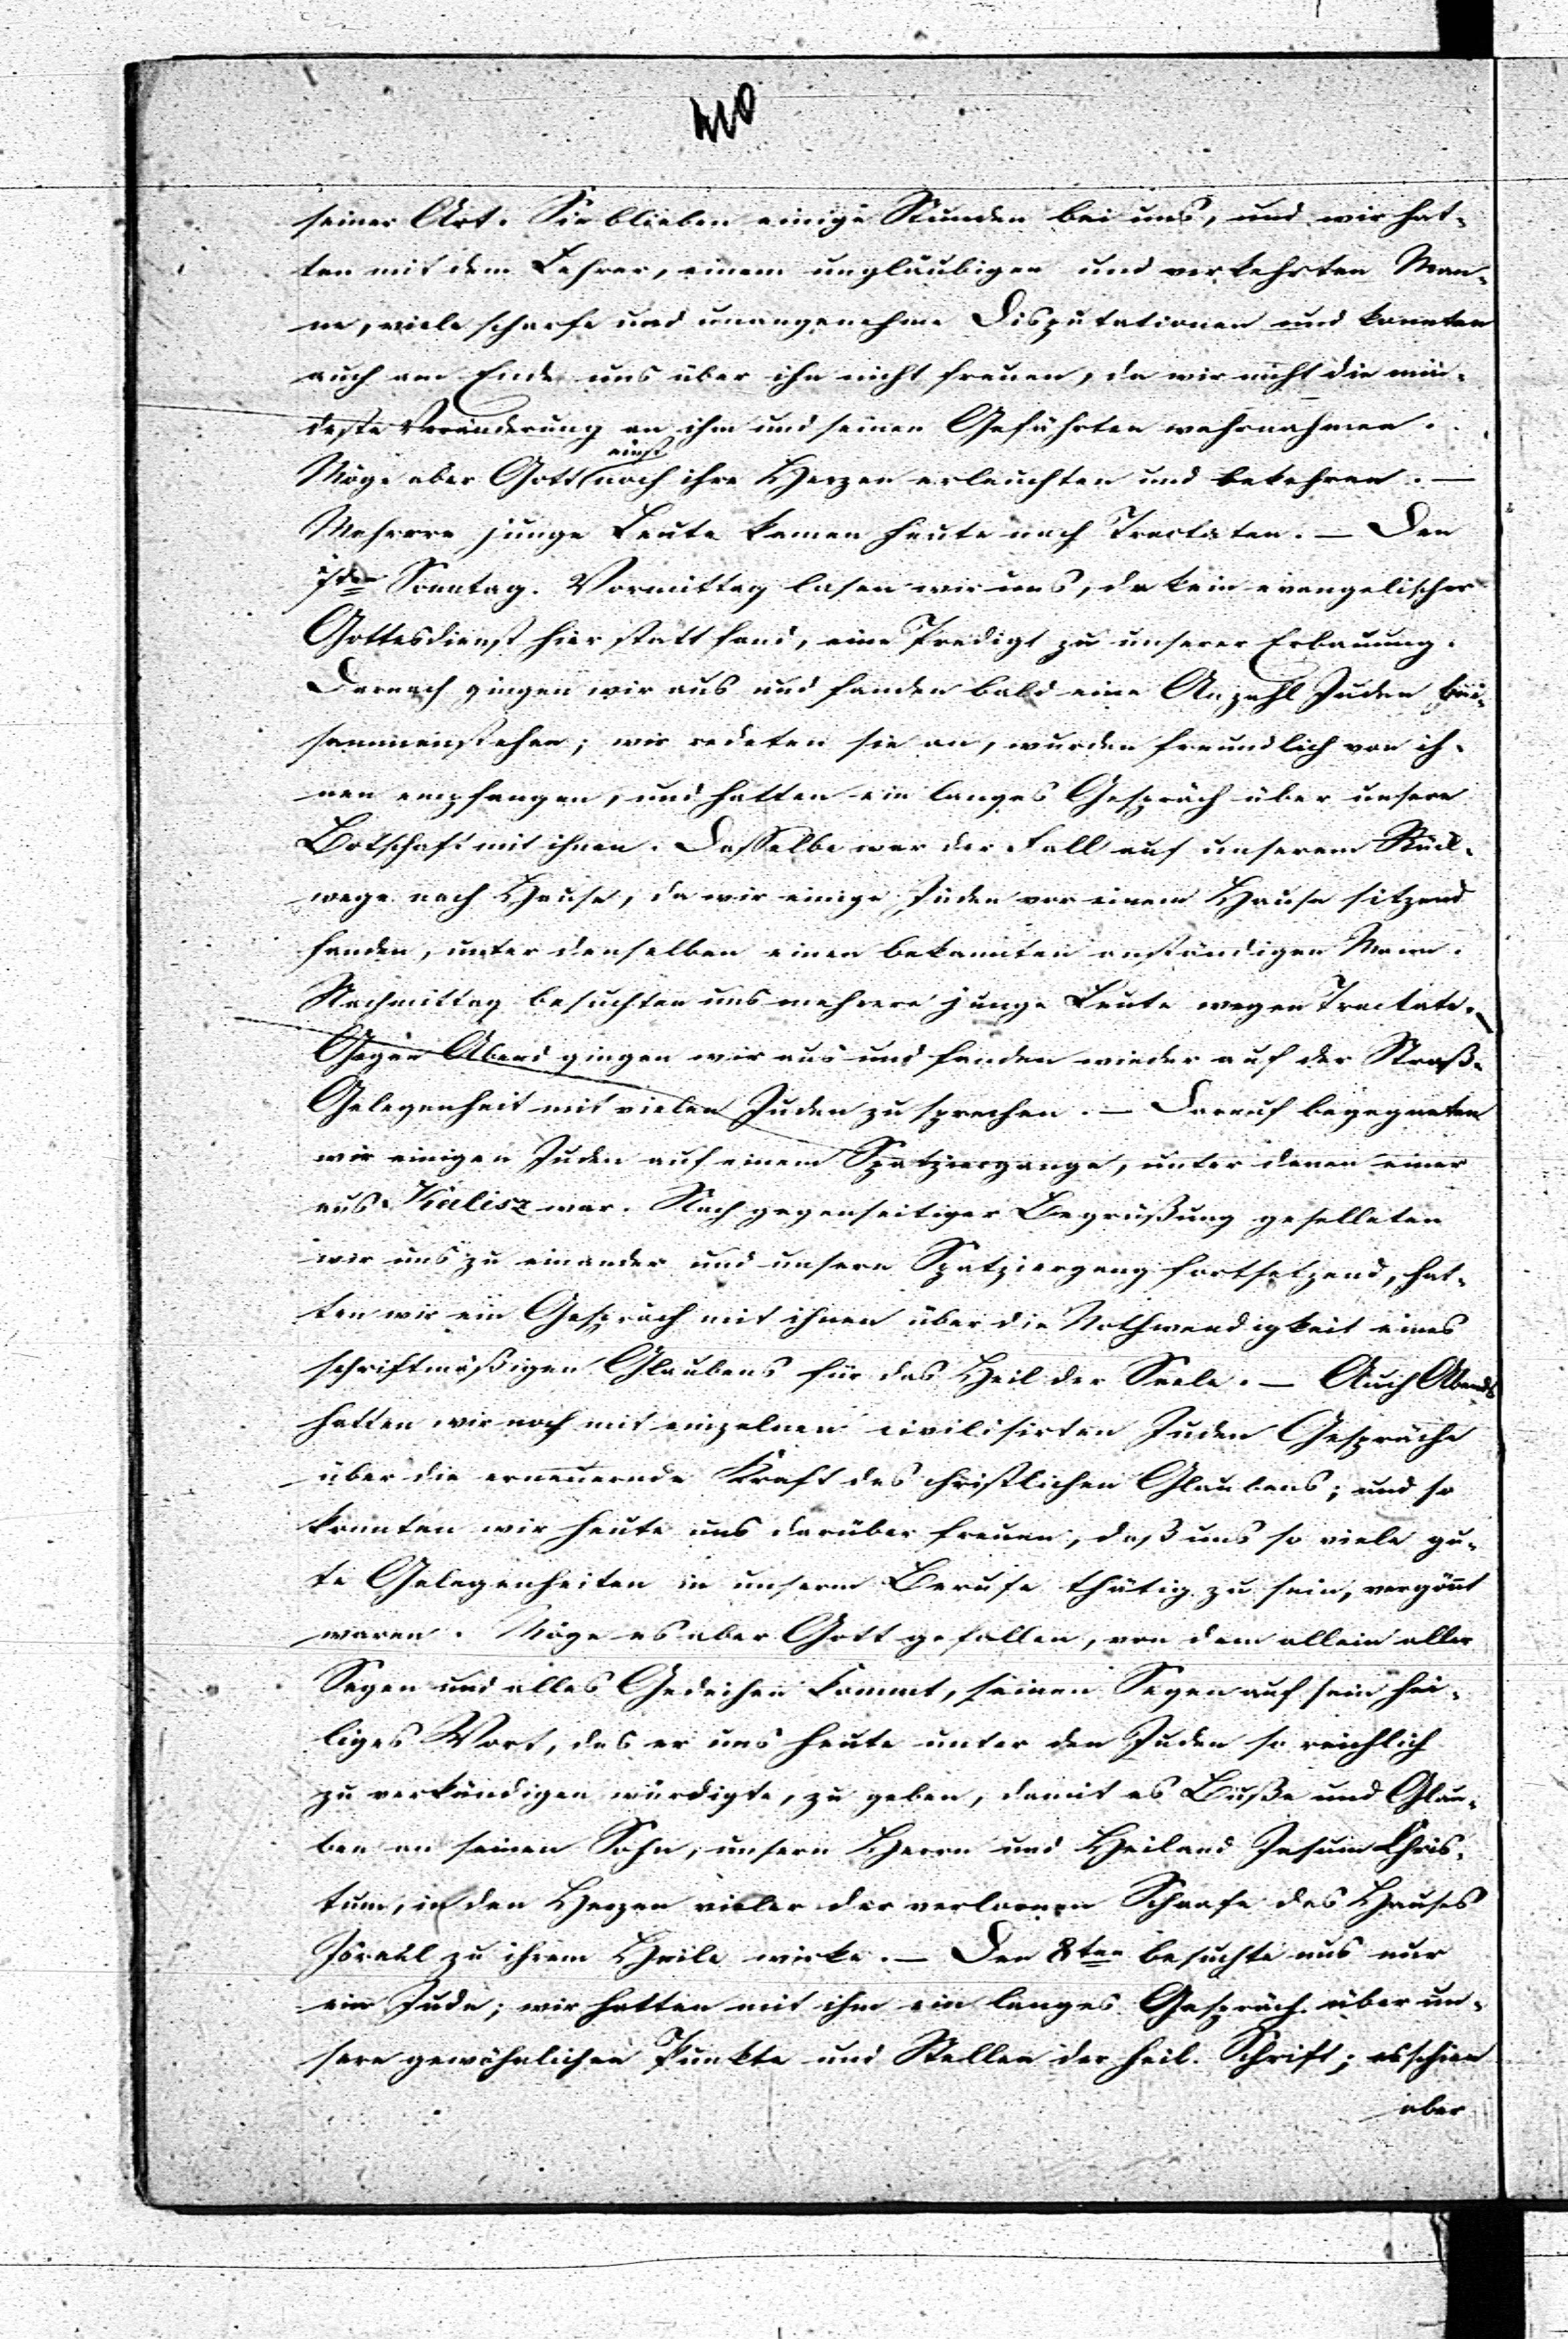 410
seiner Art. Sie blieben einige Stunden bei uns, und wir hat-
ten mit dem Lehrer, einem ungläubigen und verkehrten Man-
ne, viele scharfe und unangenehme Disputationen und konnten
auch am Ende uns über ihn nicht freuen, da wir nicht die min-
deste Veränderung an ihm und seinen Gefährten wahrnahmen.
einst
Möge aber Gott noch ihre Herzen erleuchten und bekehren. —
Mehrere junge Leute kamen heute nach Tractaten. — Den
7ten Sonntag. Vormittag lasen wir uns, da kein evangelischer
Gottesdienst hier statt fand, eine Predigt zu unserer Erbauung.
Darnach gingen wir aus und fanden bald eine Anzahl Juden bei-
sammenstehen; wir redeten sie an, wurden freundlich von ih-
nen empfangen, und hatten ein langes Gespräch über unsere
Botschaft mit ihnen. Dasselbe war der Fall auf unserem Rück-
wege nach Hause, da wir einige Juden vor einem Hause sitzend
fanden, unter denselben einen bekannten anständigen Mann.
Nachmittag besuchten uns mehrere junge Leute wegen Tractate.
Gegen Abend gingen wir aus und fanden wieder auf der Straße
Gelegenheit mit vielen Juden zu sprechen. — Darauf begegneten
wir einigen Juden auf einem Spatziergange, unter denen einer
aus Kalisz war. Nach gegenseitiger Begrüßung geselleten
wir uns zu einander und unsern Spatziergang fortsetzend, hat-
ten wir ein Gespräch mit ihnen über die Nothwendigkeit eines
schriftmäßigen Glaubens für das Heil der Seele. — Auch Abends
hatten wir noch mit einzelnen civilisirten Juden Gespräche
über die erneuernde Kraft des christlichen Glaubens; und so
konnten wir heute uns darüber freuen, daß uns so viele gu-
te Gelegenheiten in unserm Berufe thätig zu sein, vergönnt
waren. Möge es aber Gott gefallen, von dem allein aller
Segen und alles Gedeihen kommt, seinen Segen auf sein hei-
liges Wort, das er uns heute unter den Juden so reichlich
zu verkündigen würdigte, zu geben, damit es Buße und Glau-
ben an seinen Sohn, unsern Herrn und Heiland Jesum Chris-
tum, in den Herzen vieler der verlornen Schaafe des Hauses
Israel zu ihrem Heile wirke. — Den 8ten besuchte uns nur
ein Jude; wir hatten mit ihm ein langes Gespräch über un-
sere gewöhnlichen Punkte und Stellen der heil. Schrift; es schien
aber